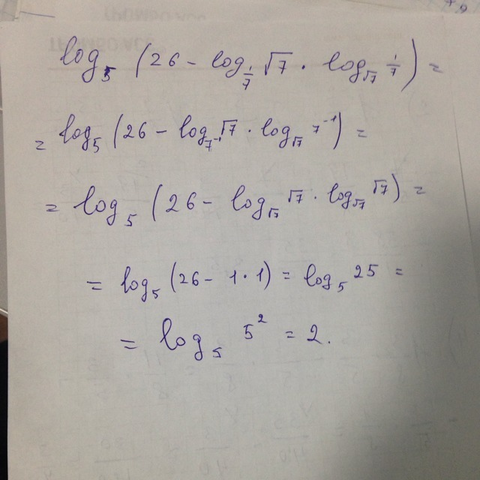 log₅ (26 - log_{1/7} √7 · log_{√7} 1/7) =
= log₅ (26 - log_{7⁻¹} √7 · log_{√7} 7⁻¹) =
= log₅ (26 - log_{√7} √7 · log_{√7} √7) =
= log₅ (26 - 1 · 1) = log₅ 25 =
= log₅ 5² = 2.